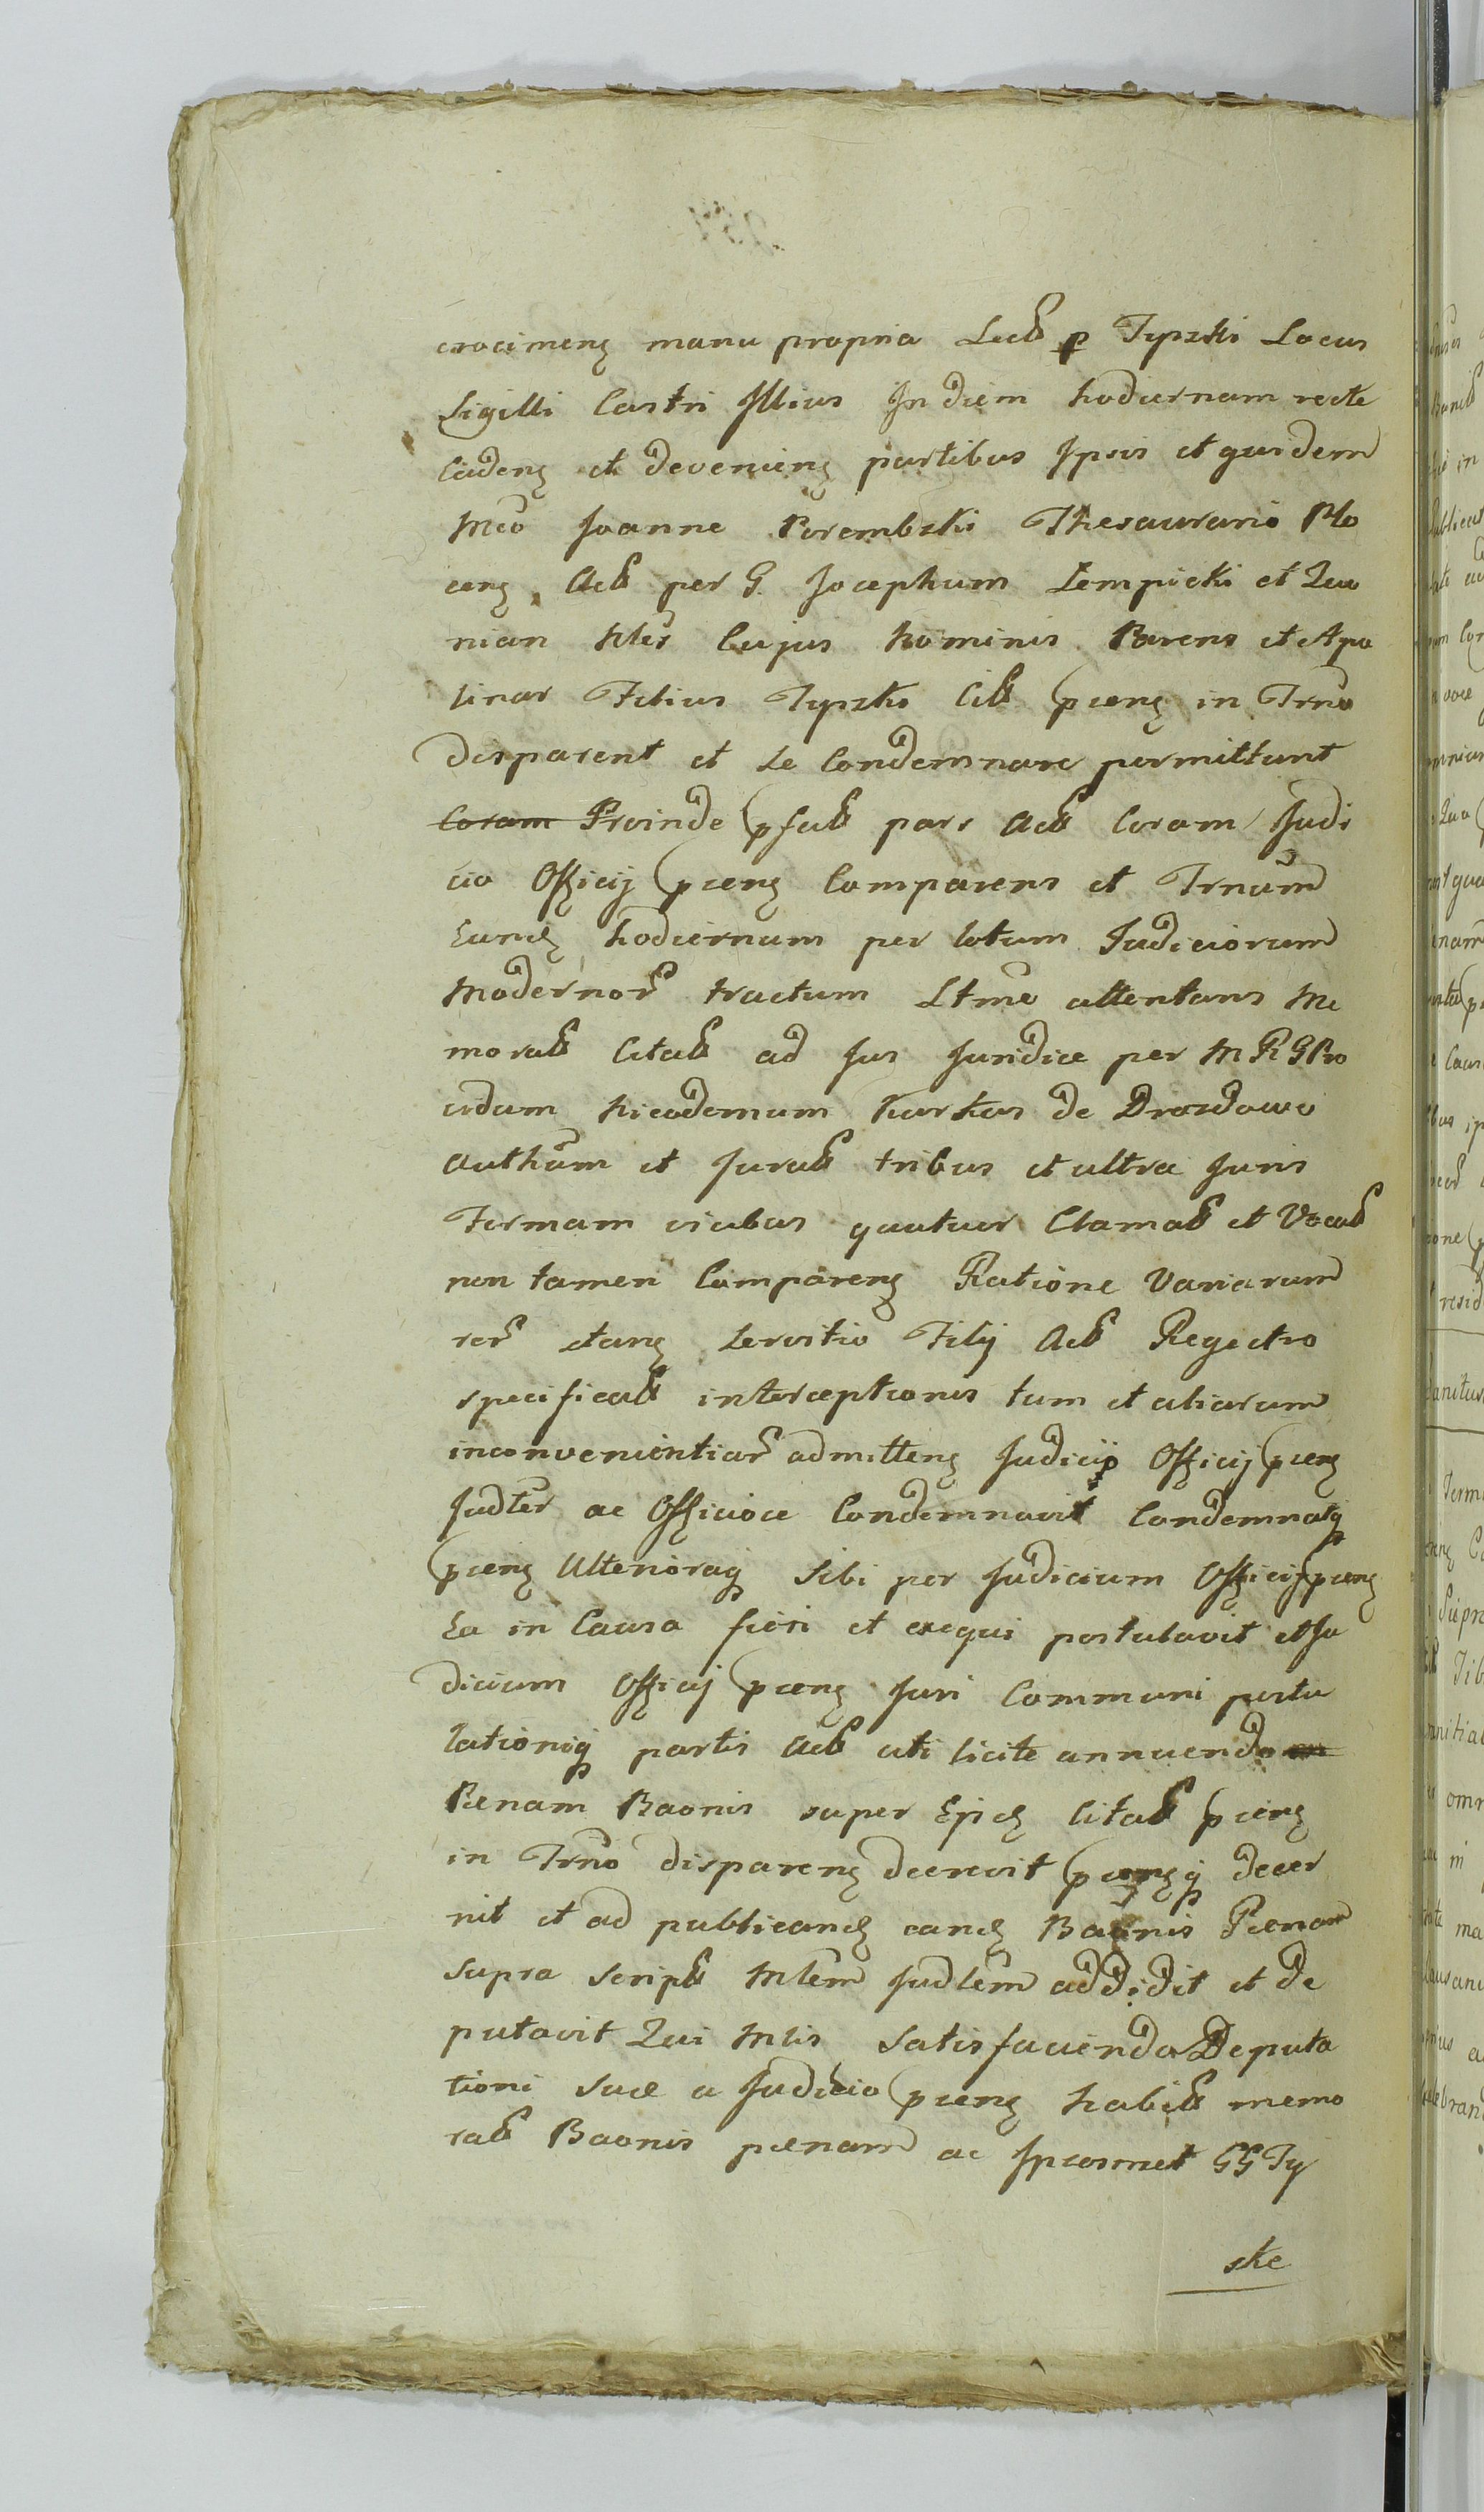 crocimeng manu propria Lectt p Tyszki Locus
Sigilli Castri Illius In diem hodiernam recte
Cadeng et deveniens partibus Ipsis et quidem
Mco Joanne Porembski Thesaurario Plo
ceng Actt per G. Josephum Lempicki et Quo
niam Nles Cujus Nominis Parens et Apo
linar Filius Tyszko Citt pñceng in Trno
disparent et se Condemnare permittunt
Coram Proinde pfatt pars Actt Coram Judi
cio Officij pñceng Comparens et Trnum
Eundg hodiernum per totum Judiciorum
Modernor tractum Ltme attentans Me
moratt Citatt ad Jus Juridice per M R G Pro
vidum Nicodemum Kurkus de Drozdowo
Authum et Juratt tribus et ultra Juris
Formam vicibus quatuor Clamatt et Vocatt
non tamen Compareng Ratione Variarum
rer etang servitio Filij Actt Regestro
specificatt interceptionis tum et aliarum
inconvenientiar admitteng Judicijo Officij pñceng
Judter ac Officiose Condemnavit Condemnatq
pñceng Ulterioraq Sibi per Judicium Officij pñceng
Ea in Causa fieri et exequi postulavit et Ju
dicium Officij pñceng Juri Communi postu
lationiq partis Actt uti licite annuendo
Pœnam Baonis super Ejsdg Citatt pñceng
in Trno dispareng decrevit pñcengq decer
nit et ad publicandg eandg Baonis Pœnam
supra scriptt Mlem Judlem addidit et de
putavit Qui Mlis satisfaciendo Deputa
tioni suæ a Judicio pñceng habitt memo
ratt Baonis pœnam ac Ipsosmet GG Ty
ske